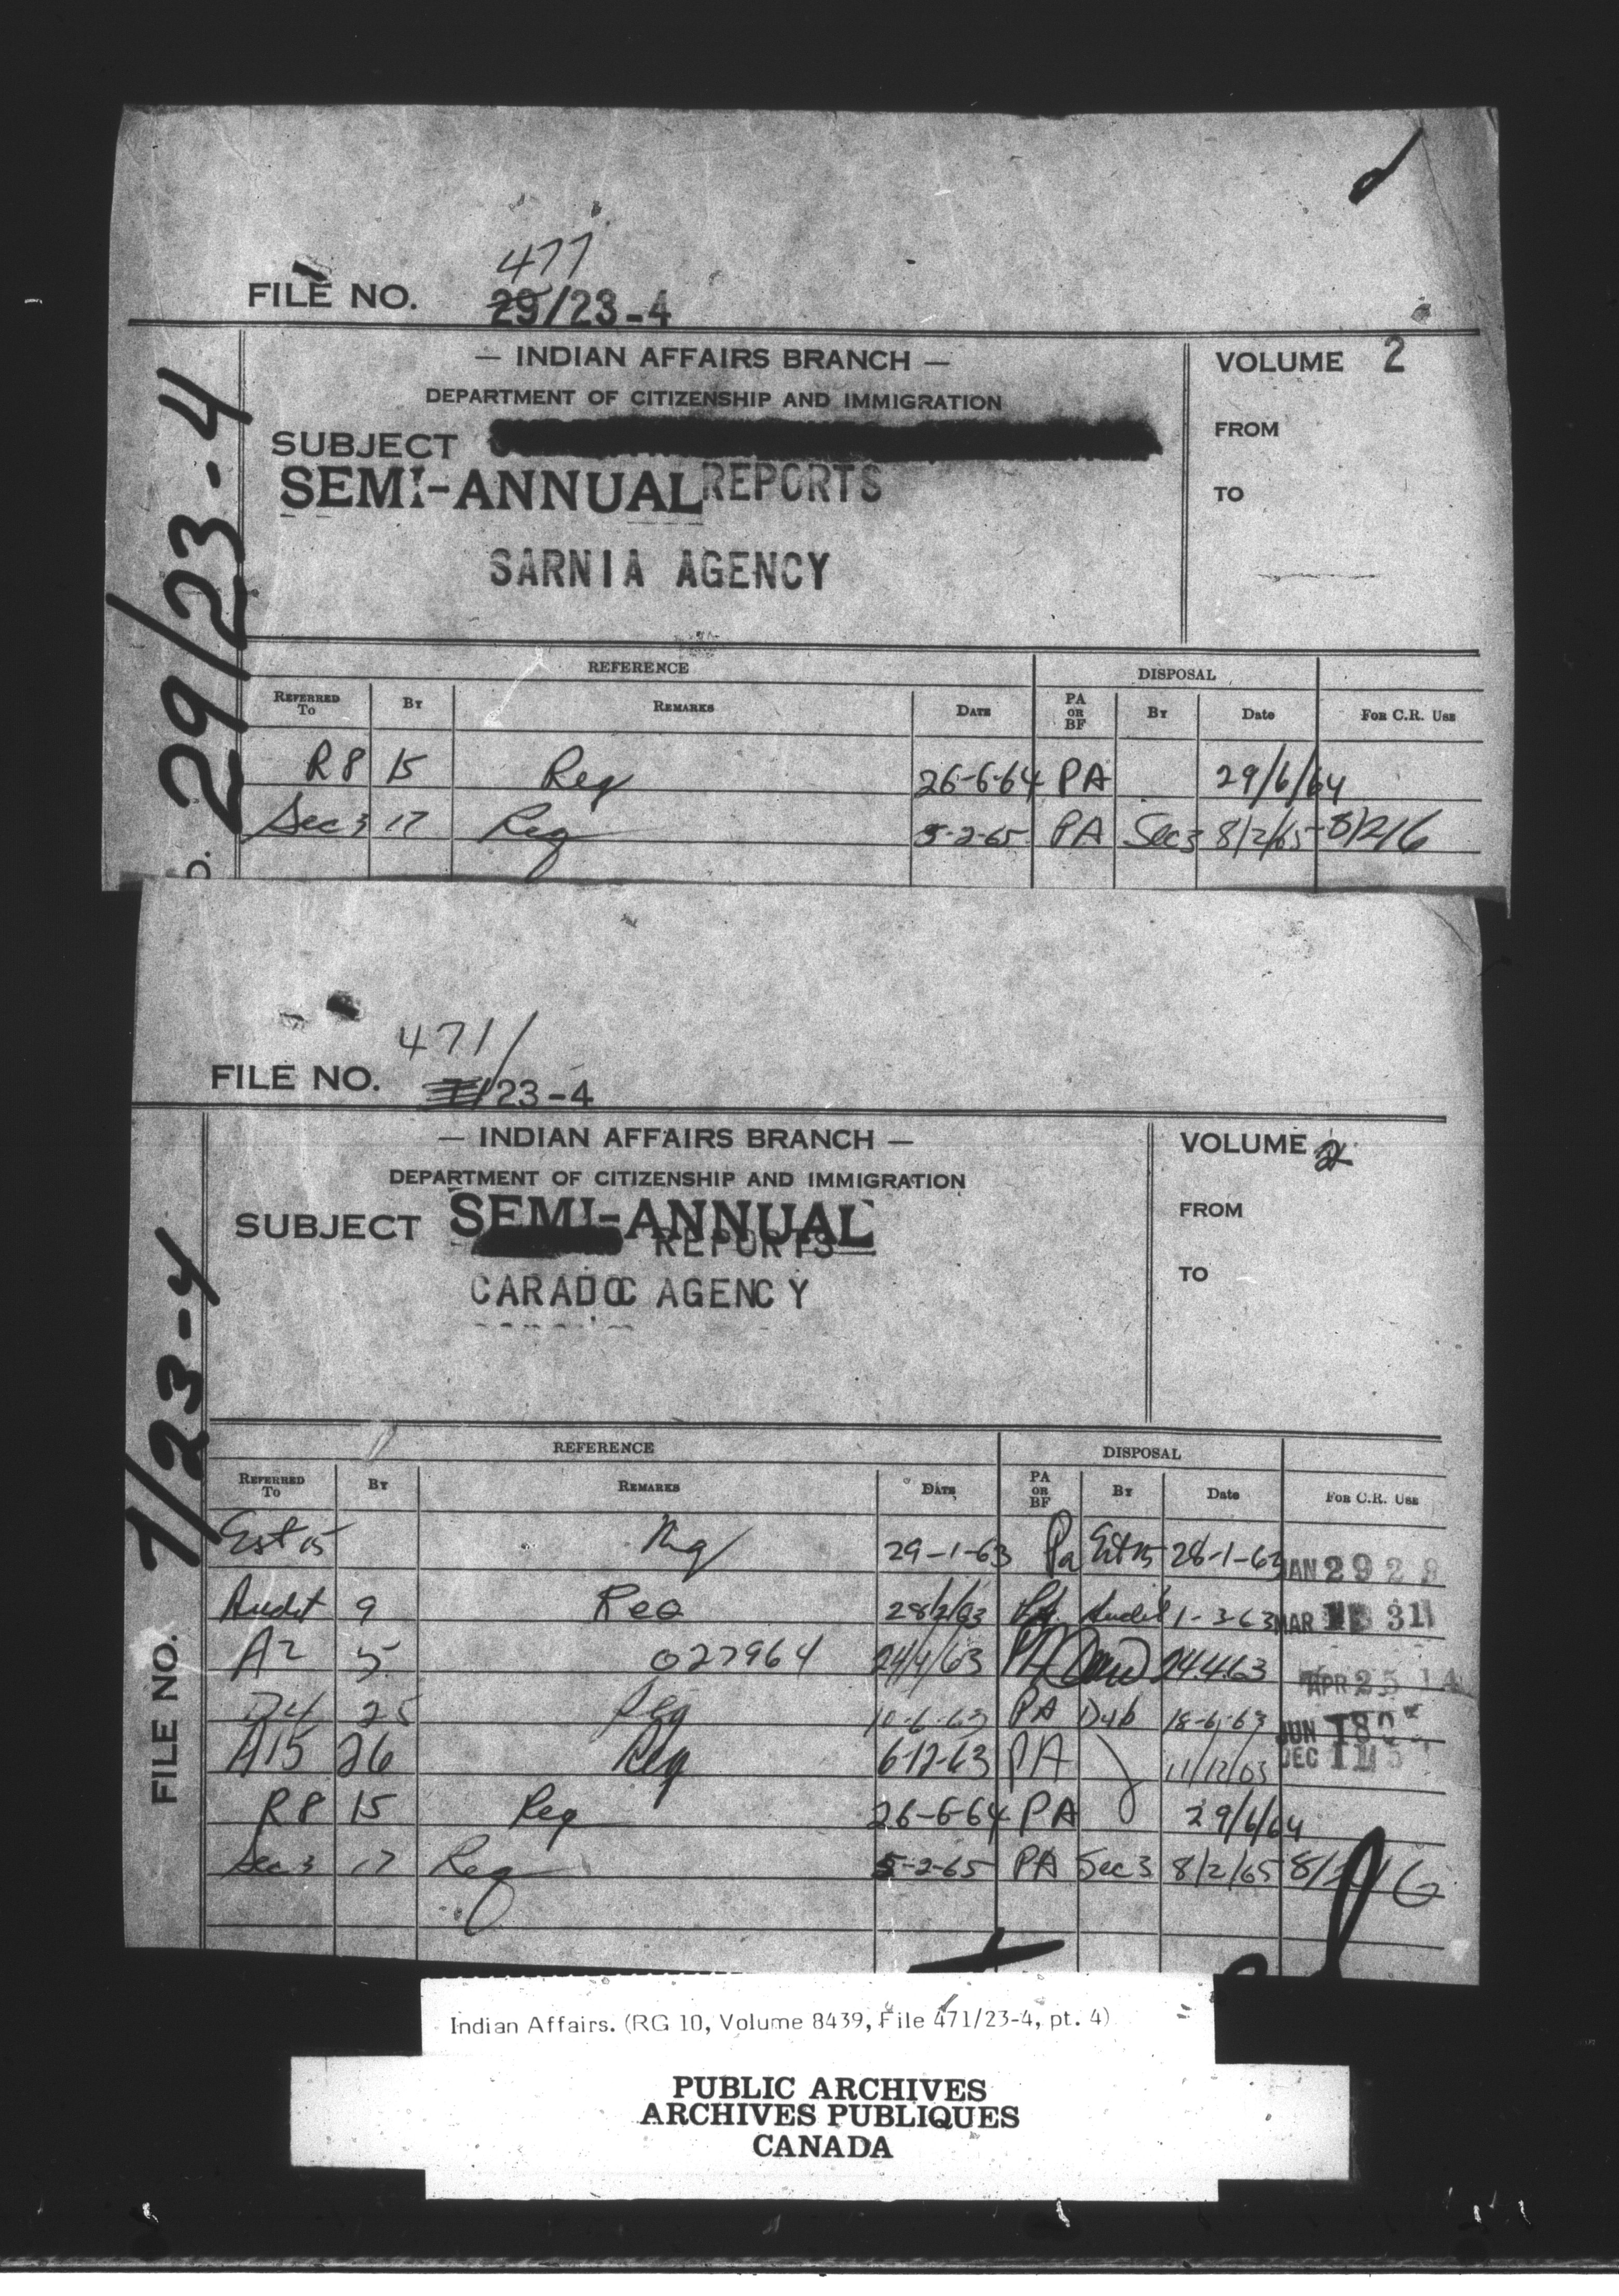 477
FILE NO. 29/23-4
— INDIAN AFFAIRS BRANCH —
DEPARTMENT OF CITIZENSHIP AND IMMIGRATION
VOLUME 2
FROM
TO
SUBJECT
SEMI-ANNUAL REPORTS
SARNIA AGENCY
29/23-4
REFERENCE DISPOSAL
REFERRED TO BY REMARKS DATE PA OR BF BY Date FOR C.R. USE
R8 15 Req 26-6-64 PA 29/6/64
Sec 3 17 Req 5-2-65 PA Sec 3 8/2/65 8/2/6
471/
FILE NO. /23-4
— INDIAN AFFAIRS BRANCH —
DEPARTMENT OF CITIZENSHIP AND IMMIGRATION
VOLUME 2
FROM
TO
SUBJECT SEMI-ANNUAL
REPORTS
CARADOC AGENCY
FILE NO. 7/23-4
REFERENCE DISPOSAL
REFERRED TO BY REMARKS DATE PA OR BF BY Date FOR C.R. USE
Est 15 Req 29-1-63 Pa Est 15 28-1-63 JAN 29
Audit 9 Req 28/2/63 Pa Audit 1-3-63 MAR 1 31
A2 5 027964 24/4/63 PA 24.4.63 APR 25
D4 25 Req 10-6-63 PA 18-6-63 JUN 18
A15 26 Req 6-12-63 PA 11/12/63 DEC 11
R8 15 Req 26-6-64 PA 29/6/64
Sec 3 17 Req 5-2-65 PA Sec 3 8/2/65
Indian Affairs. (RG 10, Volume 8439, File 471/23-4, pt. 4)
PUBLIC ARCHIVES
ARCHIVES PUBLIQUES
CANADA